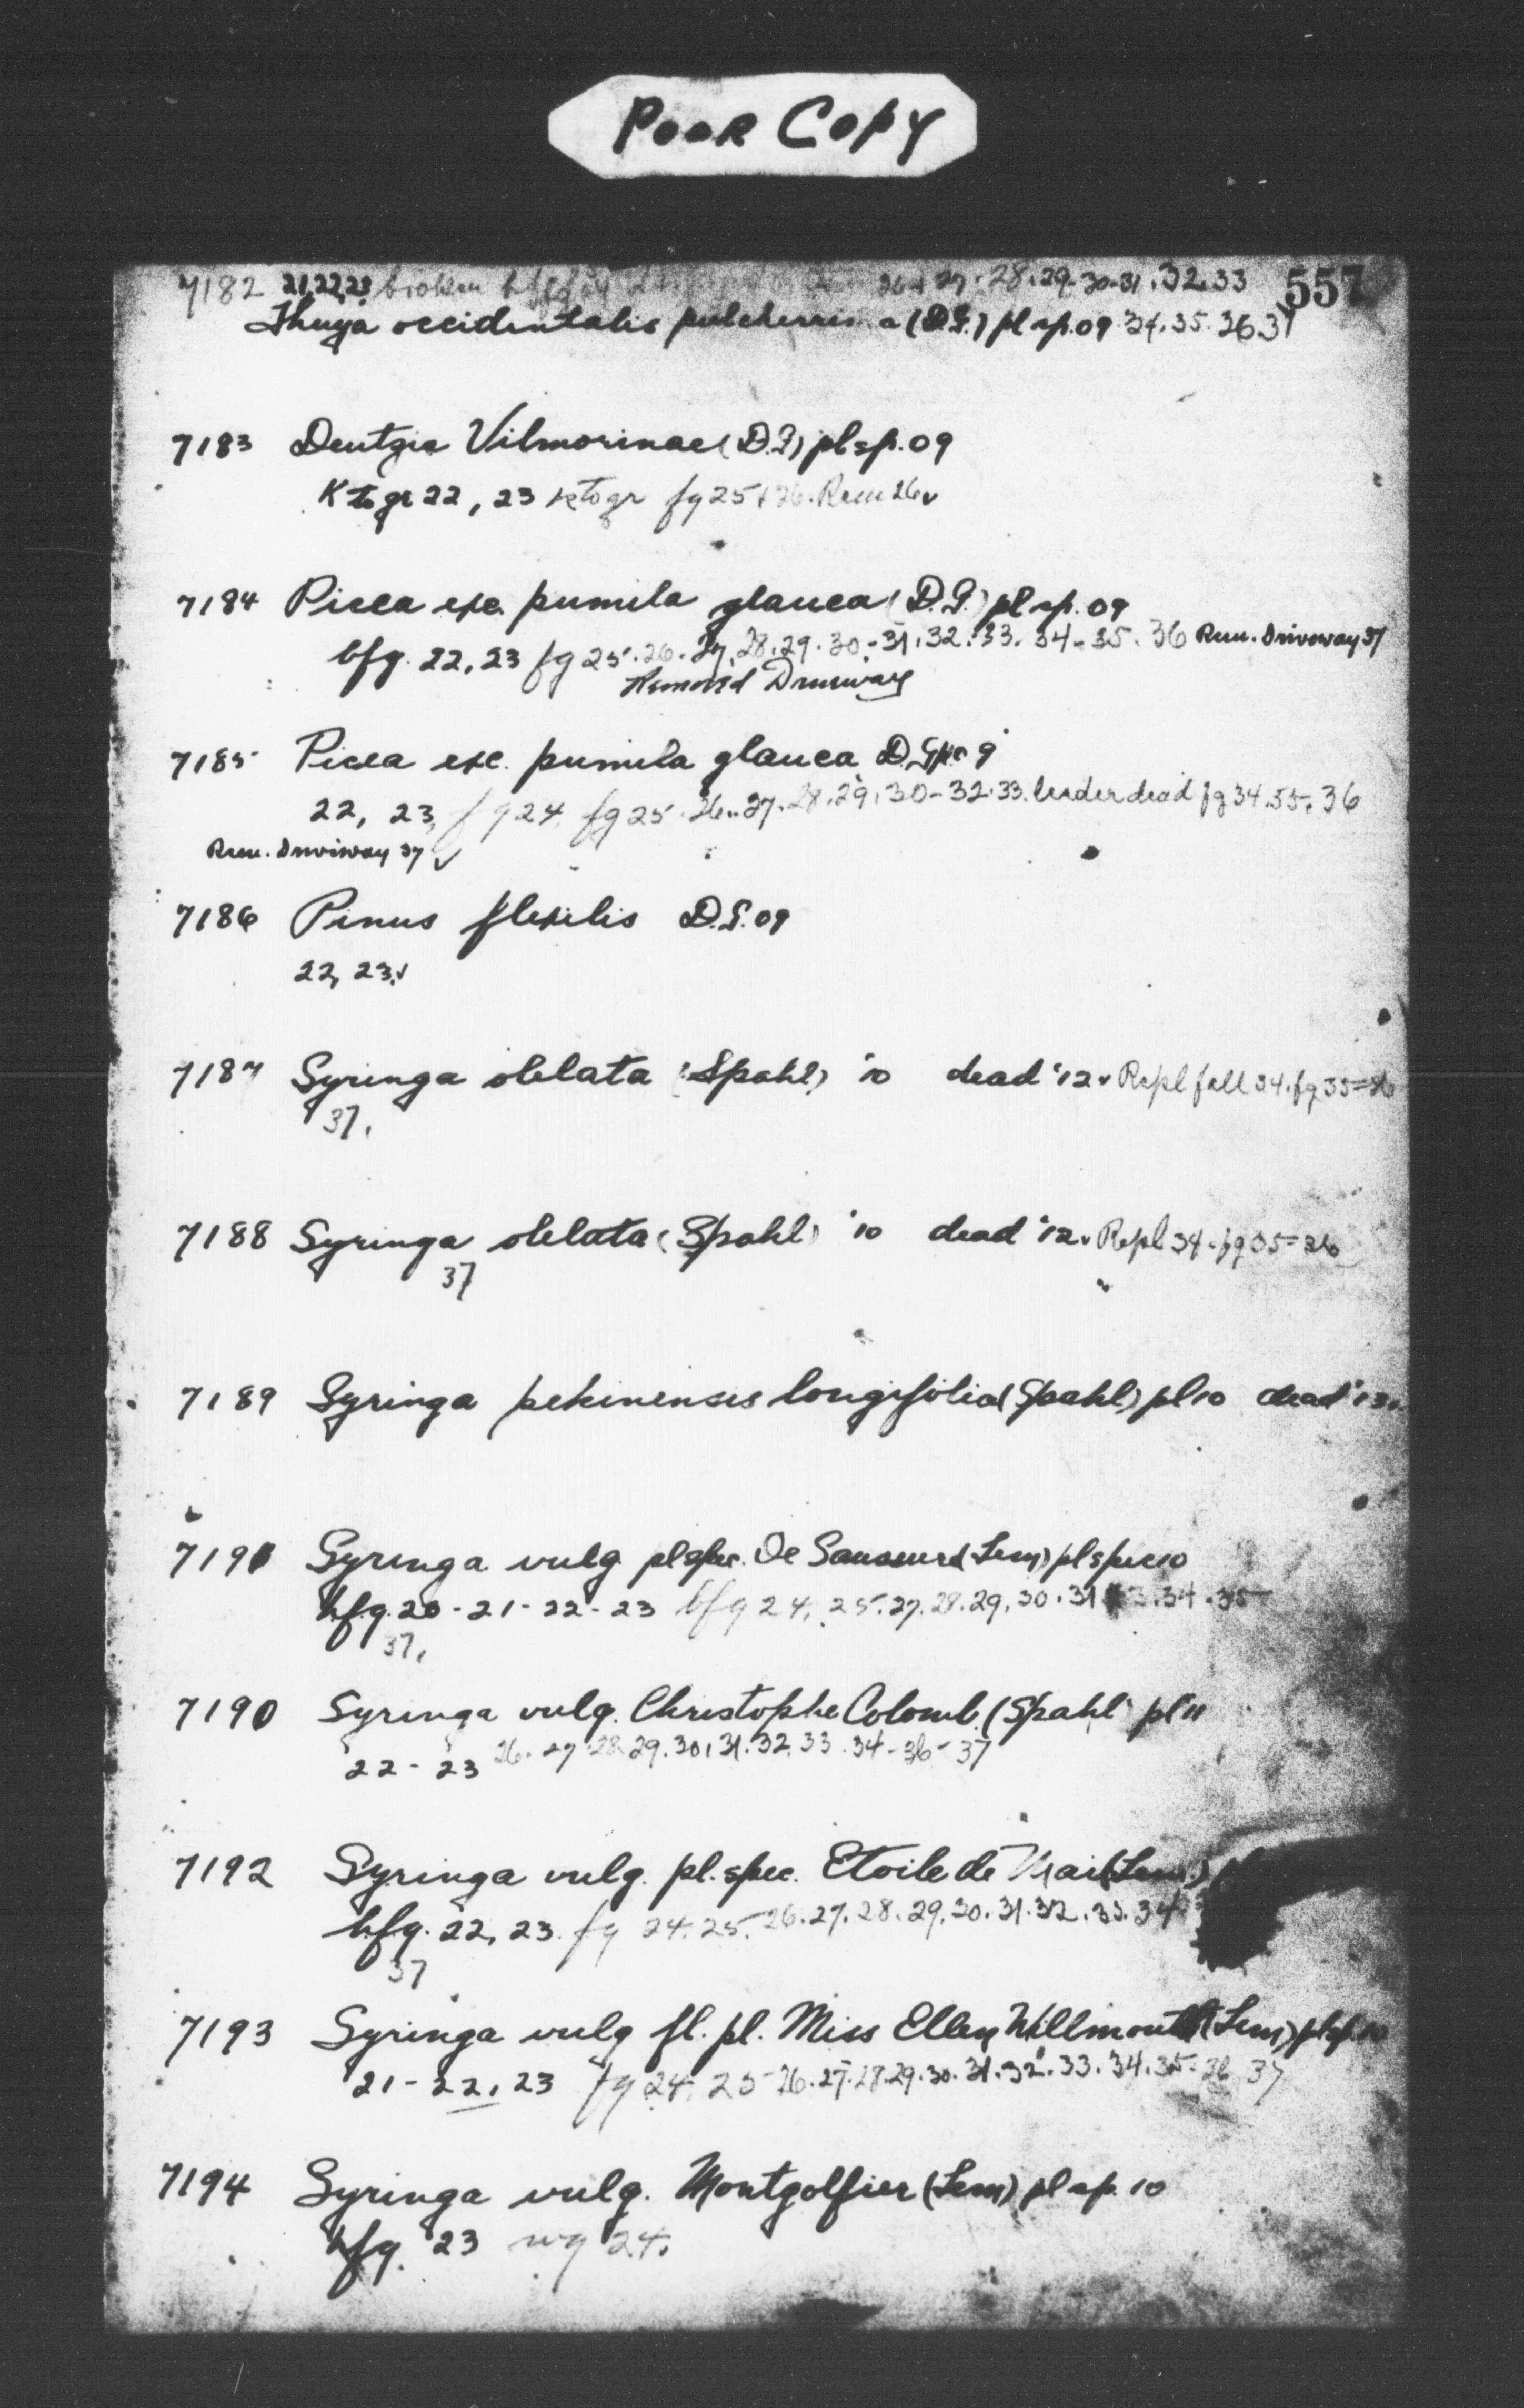 Poor Copy
557
7182 21,22,23 broken 28.29-30-31.32.33
Thuya occidentalis (D.G.) pl sp.09 34.35.36.37
7183 Deutzia Vilmorinae (D.G) pl sp. 09
K to gr 22, 23 k to gr fg 25 + 26. Rem 26 ✓
7184 Picea exc. pumila glauca (D.G.) pl sp. 09
bfg. 22, 23 fg 25.26.27.28.29.30-31.32.33.34-35.36 Rem. Driveway 37
Removed Driveway
7185 Picea exc. pumila glauca D.G. 9
22, 23, fg 24 fg 25.26.27.28.29.30-32.33. leader dead fg 34.35.36
Rem. Driveway 37 ✓
7186 Pinus flexilis D.G. 09
22, 23 ✓
7187 Syringa oblata (Spahl) '10 dead '12 ✓ Repl fall 34. fg 35-36
37.
7188 Syringa oblata (Spahl) '10 dead '12 ✓ Repl 34. fg 35-36
37
7189 Syringa pekinensis longifolia (Spahl) pl 10 dead '13 ✓
7191 Syringa vulg. pl spec. De Saussure (Lem) pl spec 10
bfg. 20-21-22-23 bfg 24, 25.27.28.29.30.31 .34.35
37.
7190 Syringa vulg. Christophe Colomb. (Spahl) pl 11
22-23 26.27 28 29.30.31.32.33.34-36-37
7192 Syringa vulg. pl. spec. Etoile de Mai (Lem.)
bfg. 22, 23. fg 24.25.26.27.28.29.30.31.32.33.34
37
7193 Syringa vulg fl. pl. Miss Ellen Willmouth (Lem) pl sp. 10
21-22, 23 fg 24. 25-26.27.28.29.30.31.32.33.34.35.36 37
7194 Syringa vulg. Montgolfier (Lem) pl sp. 10
bfg. 23 wg 24.